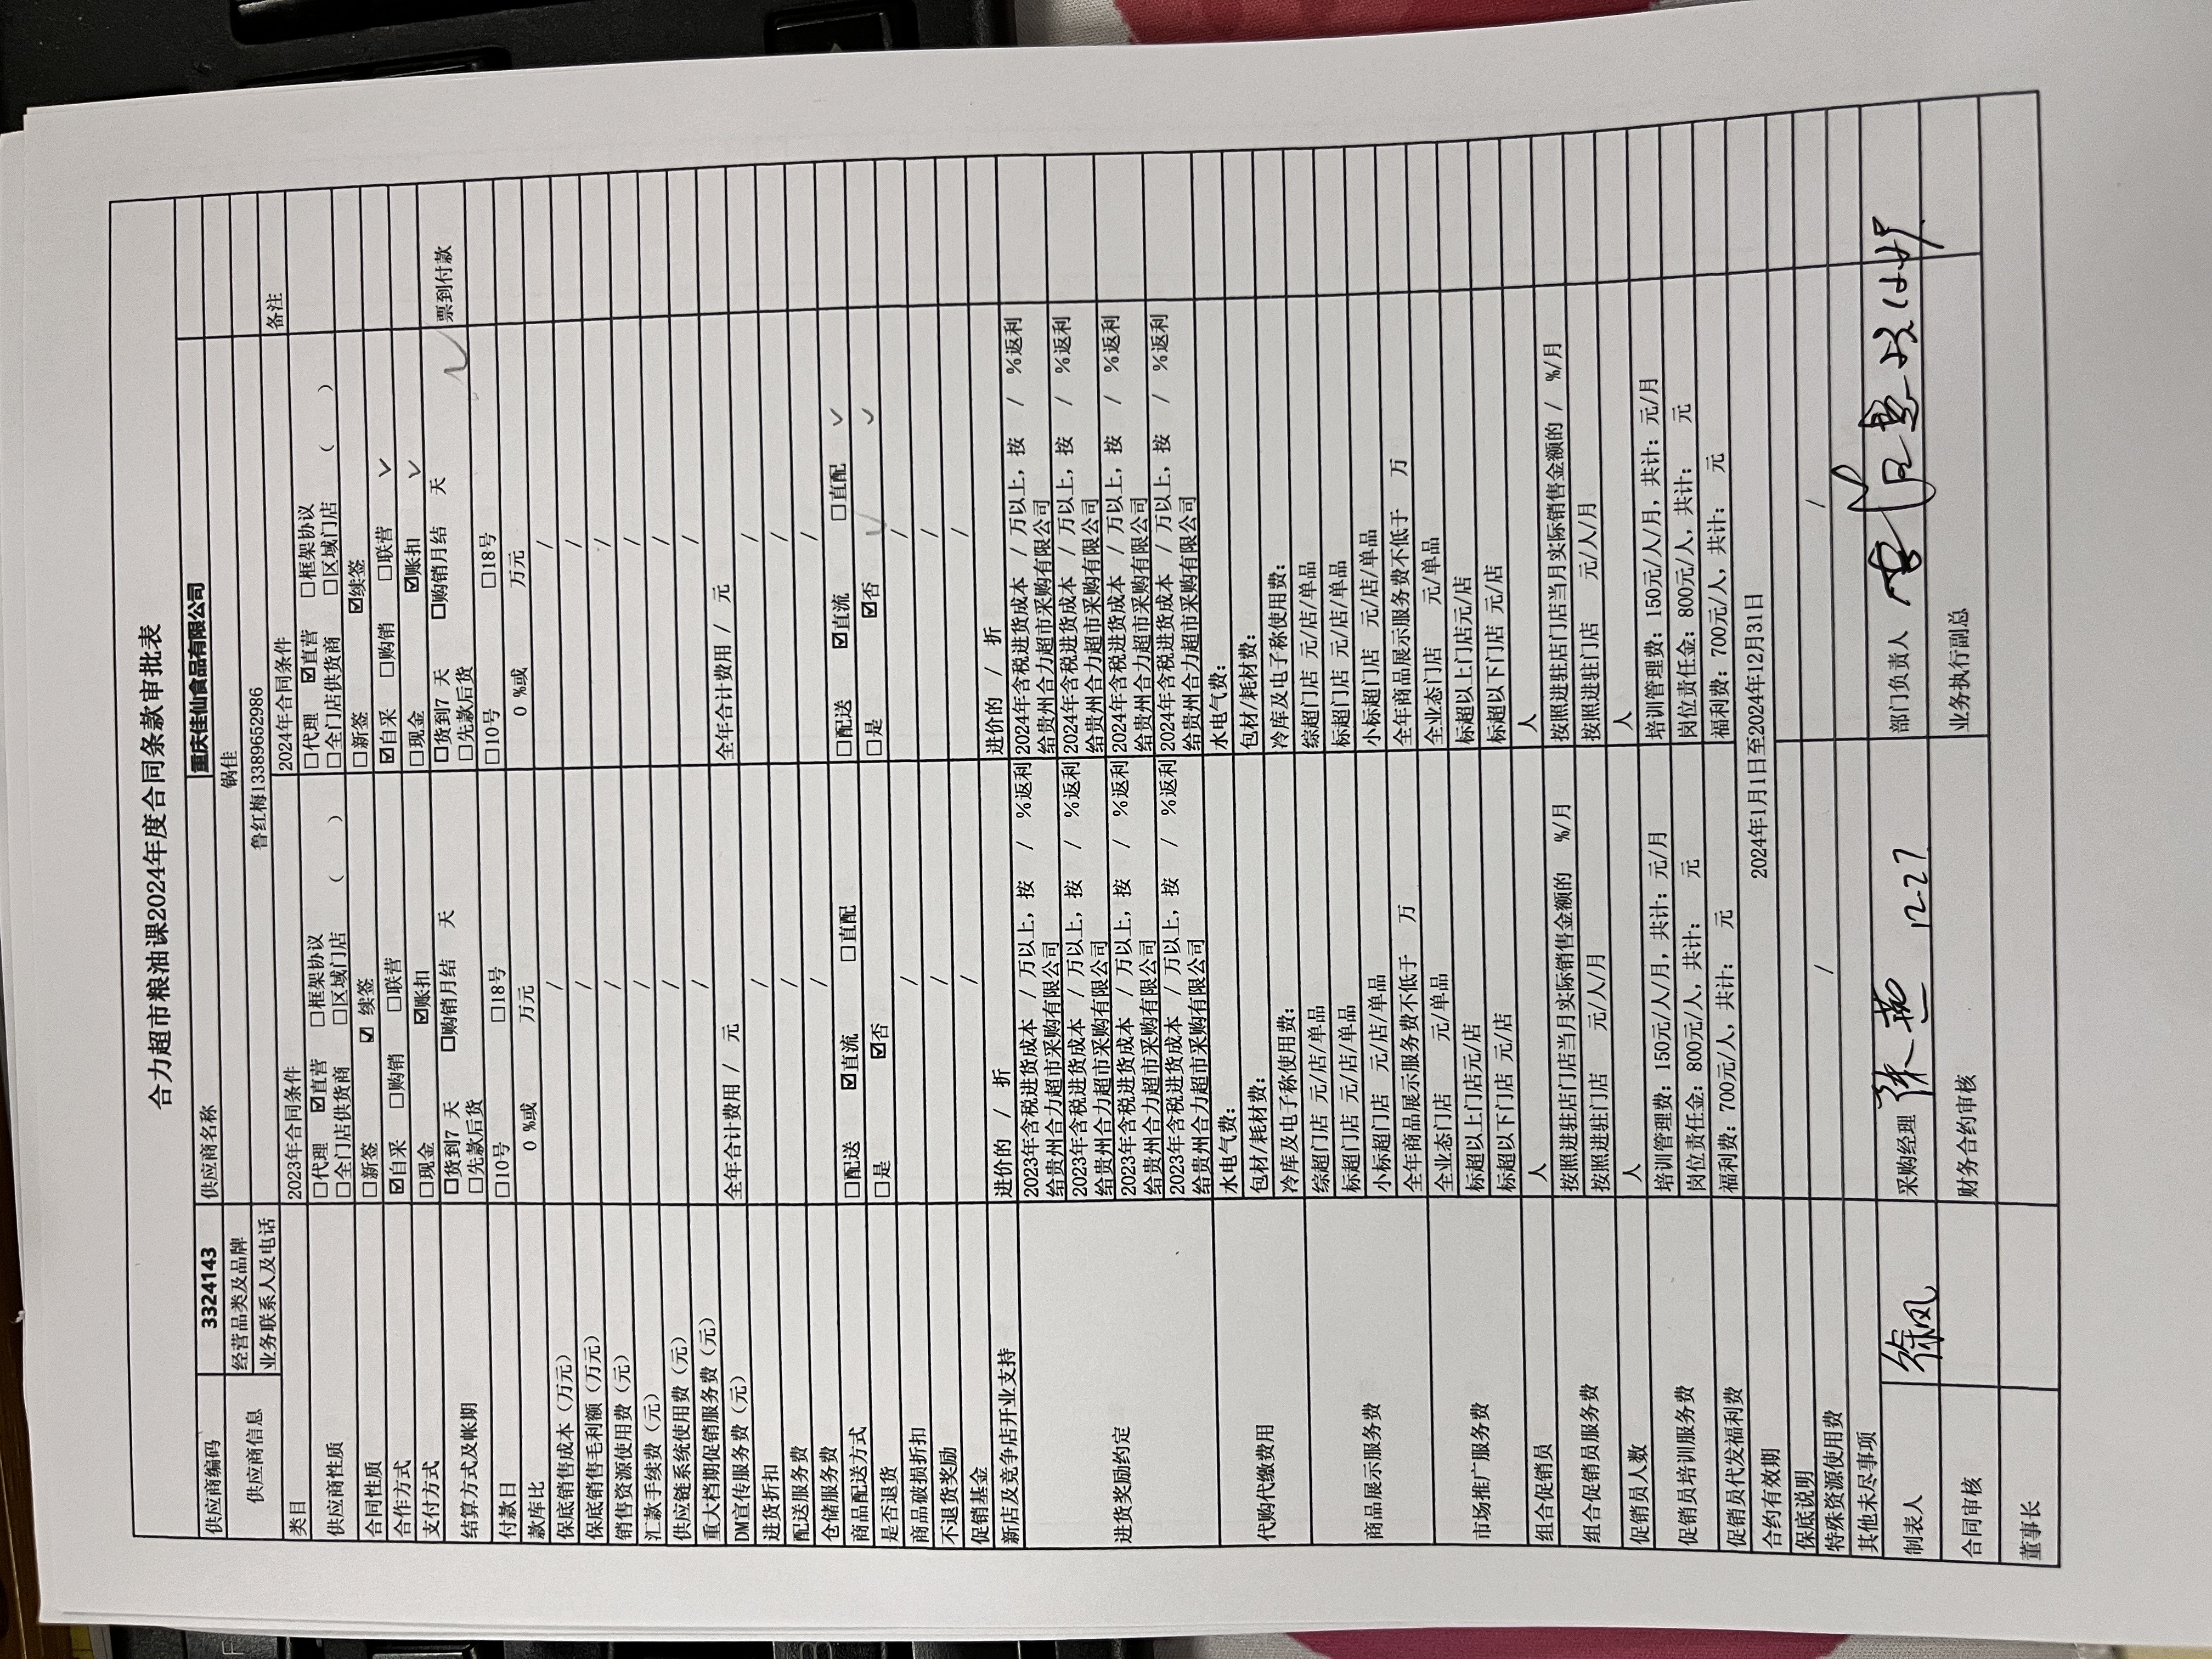 合力超市粮油课2024年度合同条款审批表
供应商编码 3324143 供应商名称 重庆佳仙食品有限公司
供应商信息 经营品类及品牌 锅佳
业务联系人及电话 鲁红梅13389652986
类目 2023年合同条件 2024年合同条件 备注
供应商性质 □代理 ☑直营 □框架协议 □代理 ☑直营 □框架协议
□全门店供货商 □区域门店 （ ） □全门店供货商 □区域门店 （ ）
合同性质 □新签 ☑ 续签 □新签 ☑续签
合作方式 ☑自采 □购销 □联营 ☑自采 □购销 □联营
支付方式 □现金 ☑账扣 □现金 ☑账扣
结算方式及帐期 □货到7 天 □购销月结 天 □货到7 天 □购销月结 天 票到付款
□先款后货 □先款后货
付款日 □10号 □18号 □10号 □18号
款库比 0 %或 万元 0 %或 万元
保底销售成本（万元） / /
保底销售毛利额（万元） / /
销售资源使用费（元） / /
汇款手续费（元） / /
供应链系统使用费（元） / /
重大档期促销服务费（元） / /
DM宣传服务费（元） 全年合计费用 / 元 全年合计费用 / 元
进货折扣 / /
配送服务费 / /
仓储服务费 / /
商品配送方式 □配送 ☑直流 □直配 □配送 ☑直流 □直配
是否退货 □是 ☑否 □是 ☑否
商品破损折扣 / /
不退货奖励 / /
促销基金 / /
新店及竞争店开业支持 进价的 / 折 进价的 / 折
进货奖励约定 2023年含税进货成本 / 万以上，按 / %返利 2024年含税进货成本 / 万以上，按 / %返利
给贵州合力超市采购有限公司 给贵州合力超市采购有限公司
2023年含税进货成本 / 万以上，按 / %返利 2024年含税进货成本 / 万以上，按 / %返利
给贵州合力超市采购有限公司 给贵州合力超市采购有限公司
2023年含税进货成本 / 万以上，按 / %返利 2024年含税进货成本 / 万以上，按 / %返利
给贵州合力超市采购有限公司 给贵州合力超市采购有限公司
2023年含税进货成本 / 万以上，按 / %返利 2024年含税进货成本 / 万以上，按 / %返利
给贵州合力超市采购有限公司 给贵州合力超市采购有限公司
代购代缴费用 水电气费： 水电气费：
包材/耗材费： 包材/耗材费：
冷库及电子称使用费： 冷库及电子称使用费：
商品展示服务费 综超门店 元/店/单品 综超门店 元/店/单品
标超门店 元/店/单品 标超门店 元/店/单品
小标超门店 元/店/单品 小标超门店 元/店/单品
全年商品展示服务费不低于 万 全年商品展示服务费不低于 万
市场推广服务费 全业态门店 元/单品 全业态门店 元/单品
标超以上门店元/店 标超以上门店元/店
标超以下门店 元/店 标超以下门店 元/店
组合促销员 人 人
组合促销员服务费 按照进驻店门店当月实际销售金额的 %/月 按照进驻店门店当月实际销售金额的 / %/月
按照进驻门店 元/人/月 按照进驻门店 元/人/月
促销员人数 人 人
促销员培训服务费 培训管理费：150元/人/月，共计：元/月 培训管理费：150元/人/月，共计：元/月
岗位责任金：800元/人，共计： 元 岗位责任金：800元/人，共计： 元
促销员代发福利费 福利费：700元/人，共计： 元 福利费：700元/人，共计： 元
合约有效期 2024年1月1日至2024年12月31日
保底说明
特殊资源使用费 / /
其他未尽事项
制表人 徐凤 采购经理 张燕 12-27 部门负责人
合同审核 财务合约审核 业务执行副总
董事长